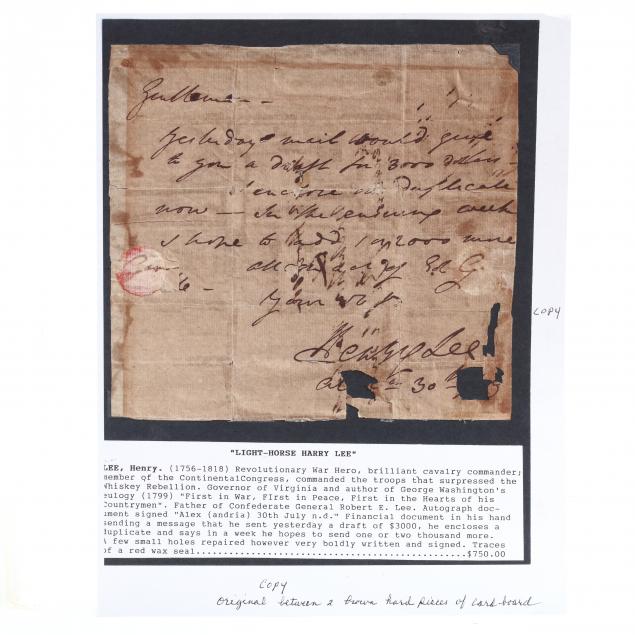 Gentlemen -
Yesterdays mail would give
to you a draft for 3000 dollars -
I enclose a duplicate
now - In the ensuing week
I hope to add 1 or 2000 more
Your
Henry Lee
30th
COPY
"LIGHT-HORSE HARRY LEE"
LEE, Henry. (1756-1818) Revolutionary War Hero, brilliant cavalry commander;
member of the ContinentalCongress, commanded the troops that surpressed the
Whiskey Rebellion. Governor of Virginia and author of George Washington's
eulogy (1799) "First in War, FIrst in Peace, First in the Hearts of his
Countrymen". Father of Confederate General Robert E. Lee. Autograph doc-
ument signed "Alex (andria) 30th July n.d." Financial document in his hand
sending a message that he sent yesterday a draft of $3000, he encloses a
duplicate and says in a week he hopes to send one or two thousand more.
A few small holes repaired however very boldly written and signed. Traces
of a red wax seal.......................................................$750.00
COPY
Original between 2 brown hard pieces of card-board